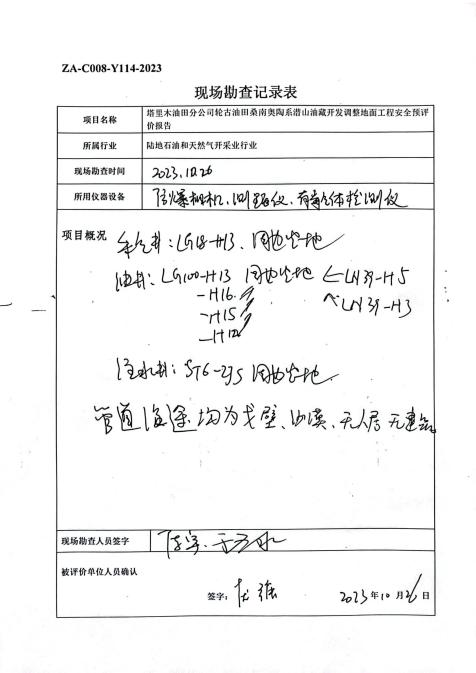 ZA-C008-Y114-2023
现场勘查记录表
项目名称
塔里木油田分公司轮古油田桑南奥陶系潜山油藏开发调整地面工程安全预评
价报告
所属行业
陆地石油和天然气开采业行业
现场勘查时间
2023.10.26
所用仪器设备
防爆相机、测距仪、有毒气体检测仪
项目概况
LG18-H13、周边空地
油井:LG100-H13 周边空地 ←LN39-H5
-H16. LN39-H3
-H15
-H12
注水井: 周边空地.
管道沿途均为戈壁、沙漠、无人居 无建筑
现场勘查人员签字
被评价单位人员确认
签字:
2023年10月26日